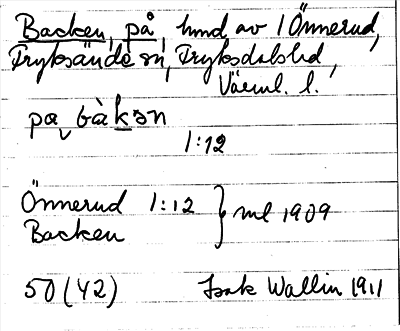 Backen, på, hmd av 1 Önnerud,
Fryksände sn, Fryksdalshd,
Värml. l.
pɑ bàkən
1:12
Önnerud 1:12 } ml 1909
Backen
50 (42) Isak Wallin 1911